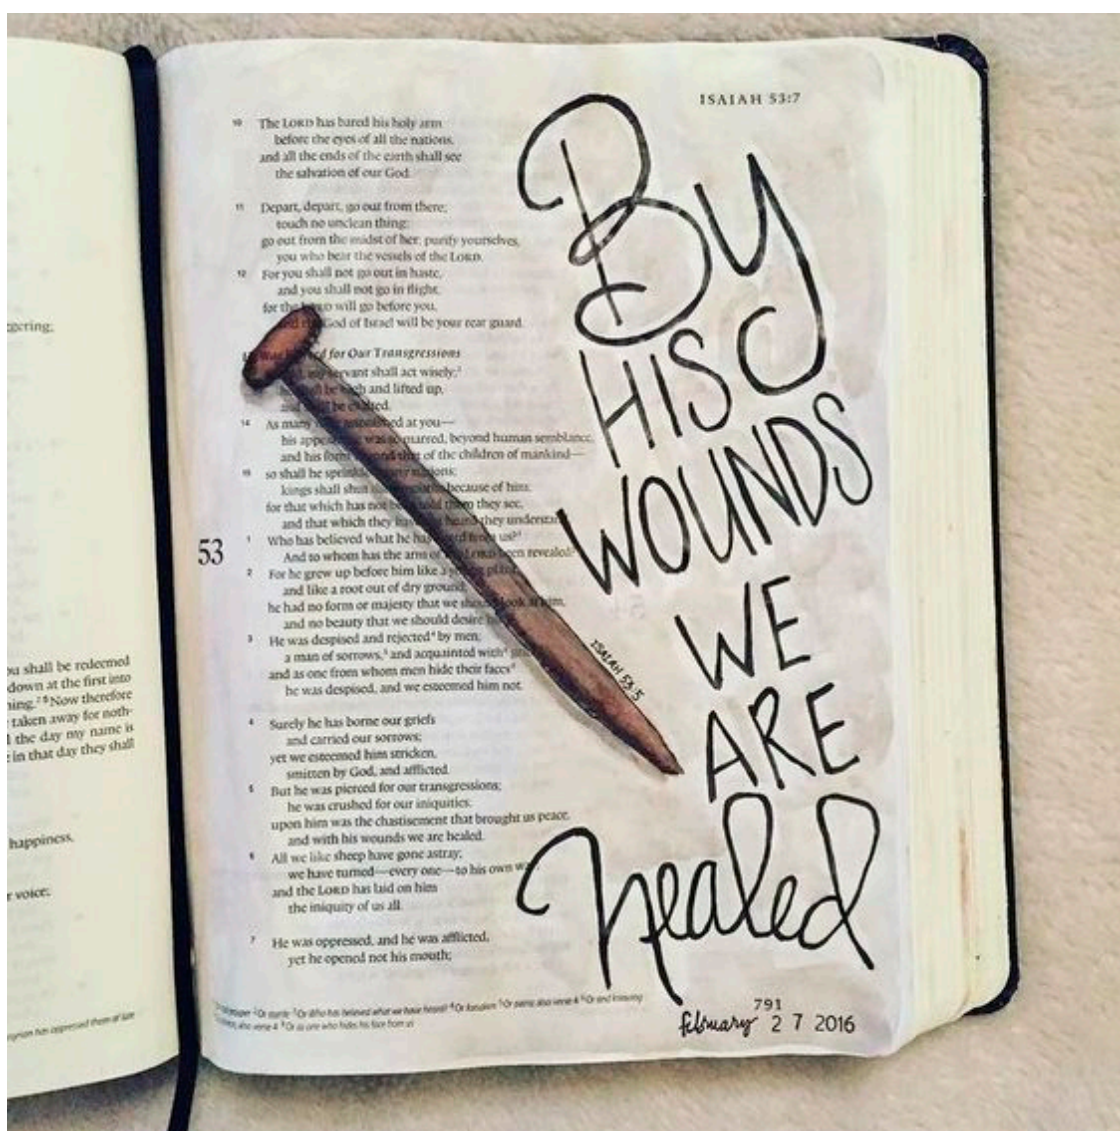 gering;
ou shall be redeemed
down at the first into
ning. 8 Now therefore
taken away for noth-
l the day my name is
e in that day they shall
happiness,
r voice;
ISAIAH 53:7
10 The LORD has bared his holy arm
before the eyes of all the nations,
and all the ends of the earth shall see
the salvation of our God.
11 Depart, depart, go out from there;
touch no unclean thing;
go out from the midst of her; purify yourselves,
you who bear the vessels of the LORD.
12 For you shall not go out in haste,
and you shall not go in flight,
for the LORD will go before you,
and the God of Israel will be your rear guard.
for Our Transgressions
servant shall act wisely;
high and lifted up,
and shall be exalted.
14 As many were astonished at you—
his appearance was so marred, beyond human semblance,
and his form beyond that of the children of mankind—
15 so shall he sprinkle many nations;
kings shall shut their mouths because of him;
for that which has not been told them they see,
and that which they have not heard they understand.
53
1 Who has believed what he has heard from us?
And to whom has the arm of the LORD been revealed?
2 For he grew up before him like a young plant,
and like a root out of dry ground;
he had no form or majesty that we should look at him,
and no beauty that we should desire
3 He was despised and rejected by men;
a man of sorrows, and acquainted with
and as one from whom men hide their faces
he was despised, and we esteemed him not.
4 Surely he has borne our griefs
and carried our sorrows;
yet we esteemed him stricken,
smitten by God, and afflicted.
5 But he was pierced for our transgressions;
he was crushed for our iniquities;
upon him was the chastisement that brought us peace,
and with his wounds we are healed.
6 All we like sheep have gone astray;
we have turned—every one—to his own
and the LORD has laid on him
the iniquity of us all.
7 He was oppressed, and he was afflicted,
yet he opened not his mouth;
ISAIAH 53:5
By
HIS
WOUNDS
WE
ARE
healed
791
february 27 2016